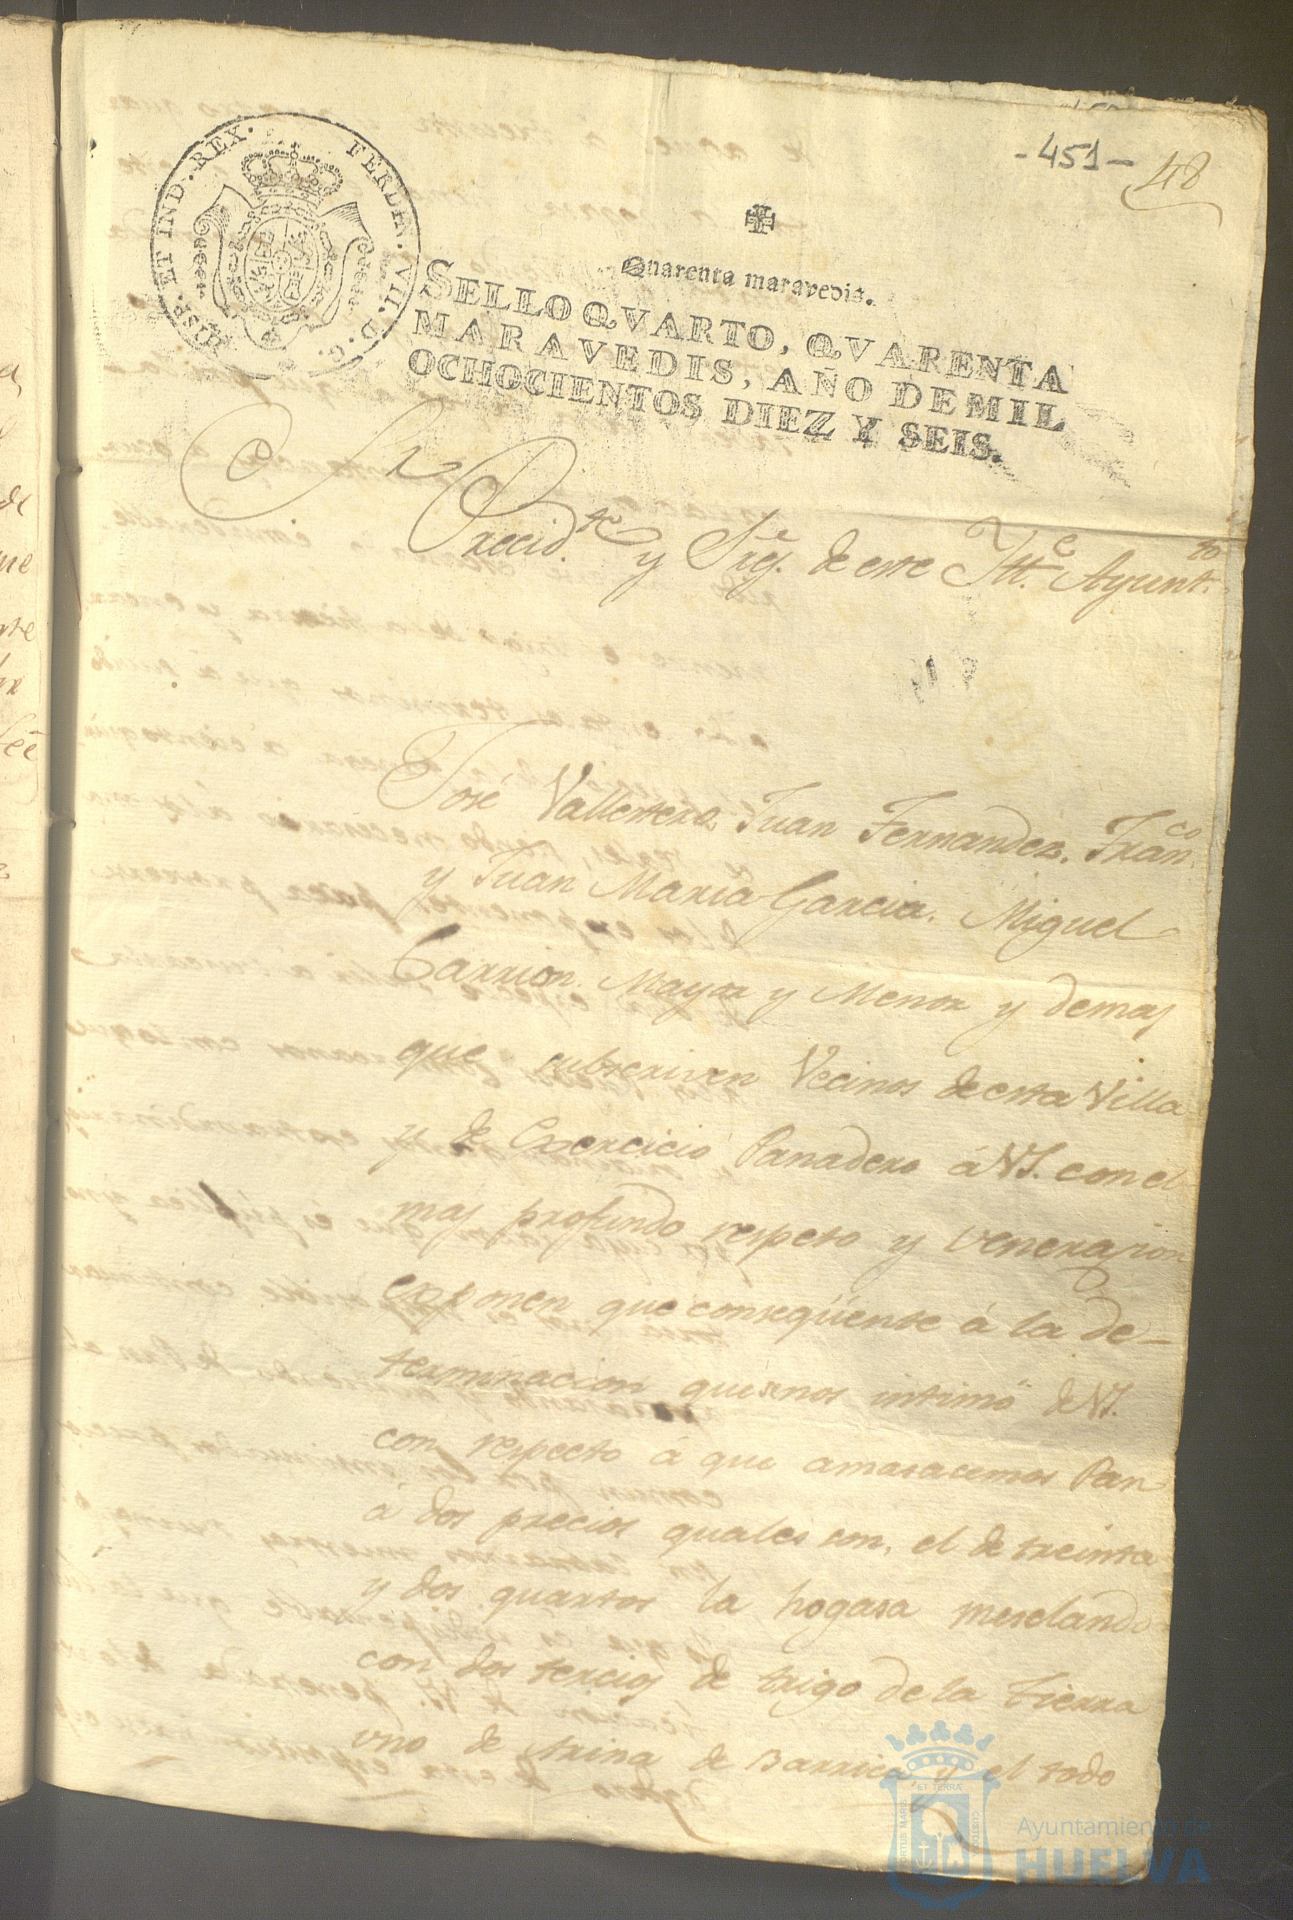 -451- 48
HISP. ET IND. REX. FERDIN. VII. D. G.
Quarenta maravedis.
SELLO QVARTO, QVARENTA
MARAVEDIS, AÑO DE MIL
OCHOCIENTOS DIEZ Y SEIS.
Sr
Precid.te y Sres. de este Itt.e Ayunt.to
José Vallestero. Juan Fernandez. Fran.co
y Juan Maria Garcia. Miguel
Carrion. Mayor y Menor y demas
que subscriven Vecinos de esta Villa
y de Exercicio Panadero á VS. con el
mas profundo respeto y venerazion
exponen que conseqüente á la de-
terminacion que se nos intimó de VS.
con respecto á que amasacemos Pan
á dos precios quales son, el de treinta
y dos quartos la hogasa mesclando
con dos tercios de trigo de la tierra
uno de arina de Barrica y el todo
PORTUS MARIS ET TERRAE CUSTODIA
Ayuntamiento de
HUELVA